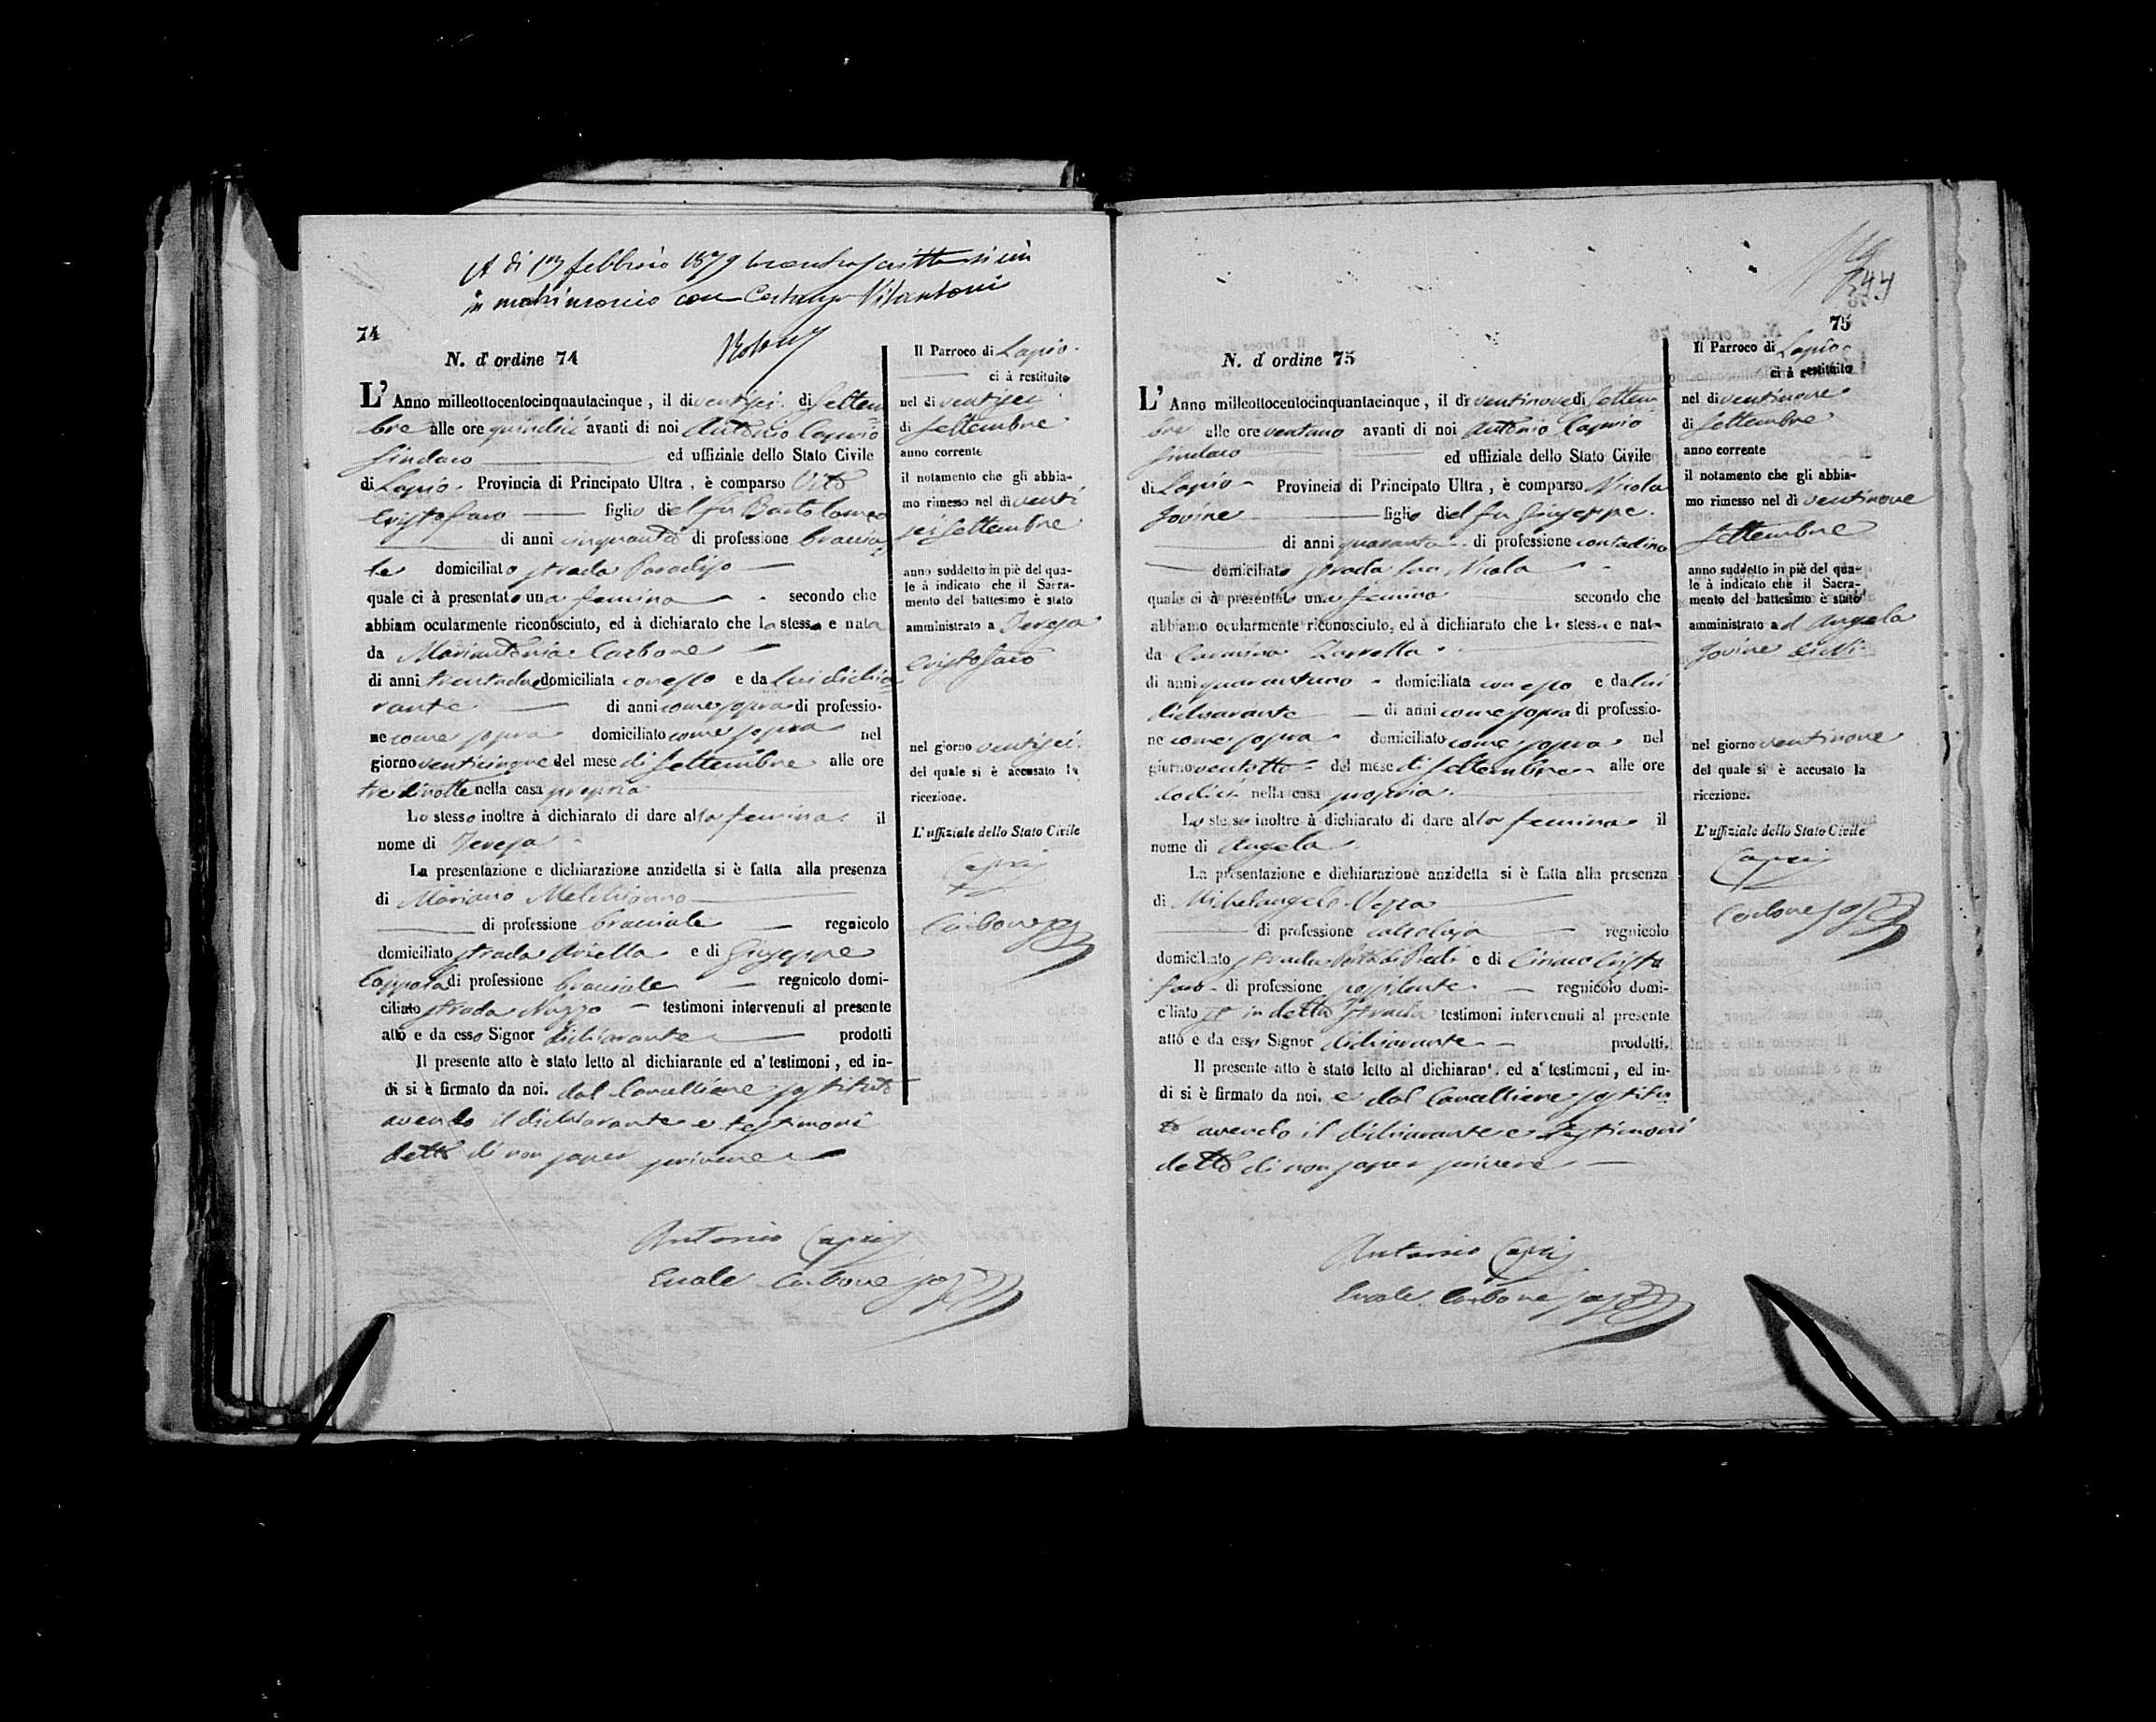 A dì 1879 febbraio
in matrimonio con Vitantonio
74
N. d'ordine 74
L' Anno milleottocentocinquantacinque, il dì ventisei di Settem
bre alle ore quindici avanti di noi Antonio Caprio
Sindaco ed uffiziale dello Stato Civile
di Lapio. Provincia di Principato Ultra, è comparso Vito
Cristofaro figlio del fu Bartolomeo
di anni cinquanta di professione braccia
le domiciliato strada Paradiso
quale ci à presentato una femina secondo che
abbiam ocularmente riconosciuto, ed à dichiarato che la stessa e nata
da Mariantonia Carbone
di anni trentadue domiciliata con esso e da lui dichia
rante di anni come sopra di professio-
ne come sopra domiciliato come sopra nel
giorno venticinque del mese di Settembre alle ore
tre di notte nella casa propria
Lo stesso inoltre à dichiarato di dare alla femina il
nome di Teresa
La presentazione e dichiarazione anzidetta si è fatta alla presenza
di Mariano Melchionno
di professione bracciale regnicolo
domiciliato strada Ariella e di Giuseppe
Coppola di professione bracciale regnicolo domi-
ciliato strada Nuzzo testimoni intervenuti al presente
atto e da esso Signor dichiarante prodotti
Il presente atto è stato letto al dichiarante ed a' testimoni, ed in-
di si è firmato da noi. dal Cancelliere sostituto
avendo il dichiarante e testimoni
detto di non saper scrivere
Antonio Caprio
Carbone
Il Parroco di Lapio.
ci à restituito
nel dì ventisei
di Settembre
anno corrente
il notamento che gli abbia-
mo rimesso nel dì venti
sei Settembre
anno suddetto in piè del qua-
le à indicato che il Sacra-
mento del battesimo è stato
amministrato a Teresa
Cristofaro
nel giorno ventisei.
del quale si è accusato la
ricezione.
L'uffiziale dello Stato Civile
Caprio
Carbone
75
N. d'ordine 75
L' Anno milleottocentocinquantacinque, il dì ventinove di Settem
bre alle ore ventuno avanti di noi Antonio Caprio
Sindaco ed uffiziale dello Stato Civile
di Lapio Provincia di Principato Ultra, è comparso Nicola
Jovine figlio del fu Giuseppe.
di anni quaranta di professione contadino
domiciliato strada San Nicola
quale ci à presentato una femina secondo che
abbiamo ocularmente riconosciuto, ed à dichiarato che la stessa e nata
da Carmina Zarrella
di anni quarantuno domiciliata con esso e da lui
dichiarante di anni come sopra di professio-
ne come sopra domiciliato come sopra nel
giorno ventotto del mese di Settembre alle ore
dodici nella casa propria.
Lo stesso inoltre à dichiarato di dare alla femina il
nome di Angela
La presentazione e dichiarazione anzidetta si è fatta alla presenza
di Michelangelo
di professione calzolajo regnicolo
domiciliato strada e di Ciriaco Cristo
faro di professione possidente regnicolo domi-
ciliato in detta strada testimoni intervenuti al presente
atto e da esso Signor dichiarante prodotti.
Il presente atto è stato letto al dichiarant. ed a' testimoni, ed in-
di si è firmato da noi. e dal Cancelliere sostitu
to avendo il dichiarante e testimoni
detto di non saper scrivere
Antonio Caprio
Carbone
Il Parroco di Lapio
ci à restituito
nel dì ventinove
di Settembre
anno corrente
il notamento che gli abbia-
mo rimesso nel dì ventinove
Settembre
anno suddetto in piè del qua-
le à indicato che il Sacra-
mento del battesimo è stato
amministrato ad Angela
Jovine
nel giorno ventinove
del quale si è accusato la
ricezione.
L'uffiziale dello Stato Civile
Caprio
Carbone